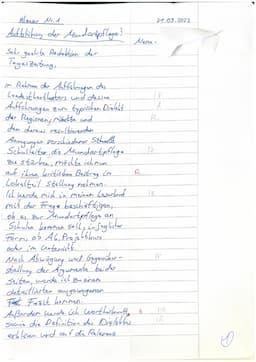 Klausur Nr. 1 21.03.2022
Aufblühung der Mundartpflege?
Name:
Sehr geehrte Redaktion der
Tageszeitung,
im Rahmen der Aufführungen des
Landestheaters und dessen
Aufführungen zum typischen Dialekt
der Regionen, möchte und
den daraus resultierenden
Anregungen verschiedener
Schulleiter, die Mundartpflege
zu stärken, möchte ich nun
auf ihren kritischen Beitrag im
Lokalteil Stellung nehmen.
Ich werde mich in meinem
mit der Frage beschäftigen,
ob es zur Mundartpflege an
Schulen kommen soll, in jeglicher
Form, ob AG, Projektkurs
oder im Unterricht.
Nach Abwägung und Gegenüber-
stellung der Argumente beider
Seiten, werde ich zu einem
detaillierten ausgewogenen
Fazit kommen.
Außerdem werde ich
sowie die Definition des Dialektes
erklären und auf die